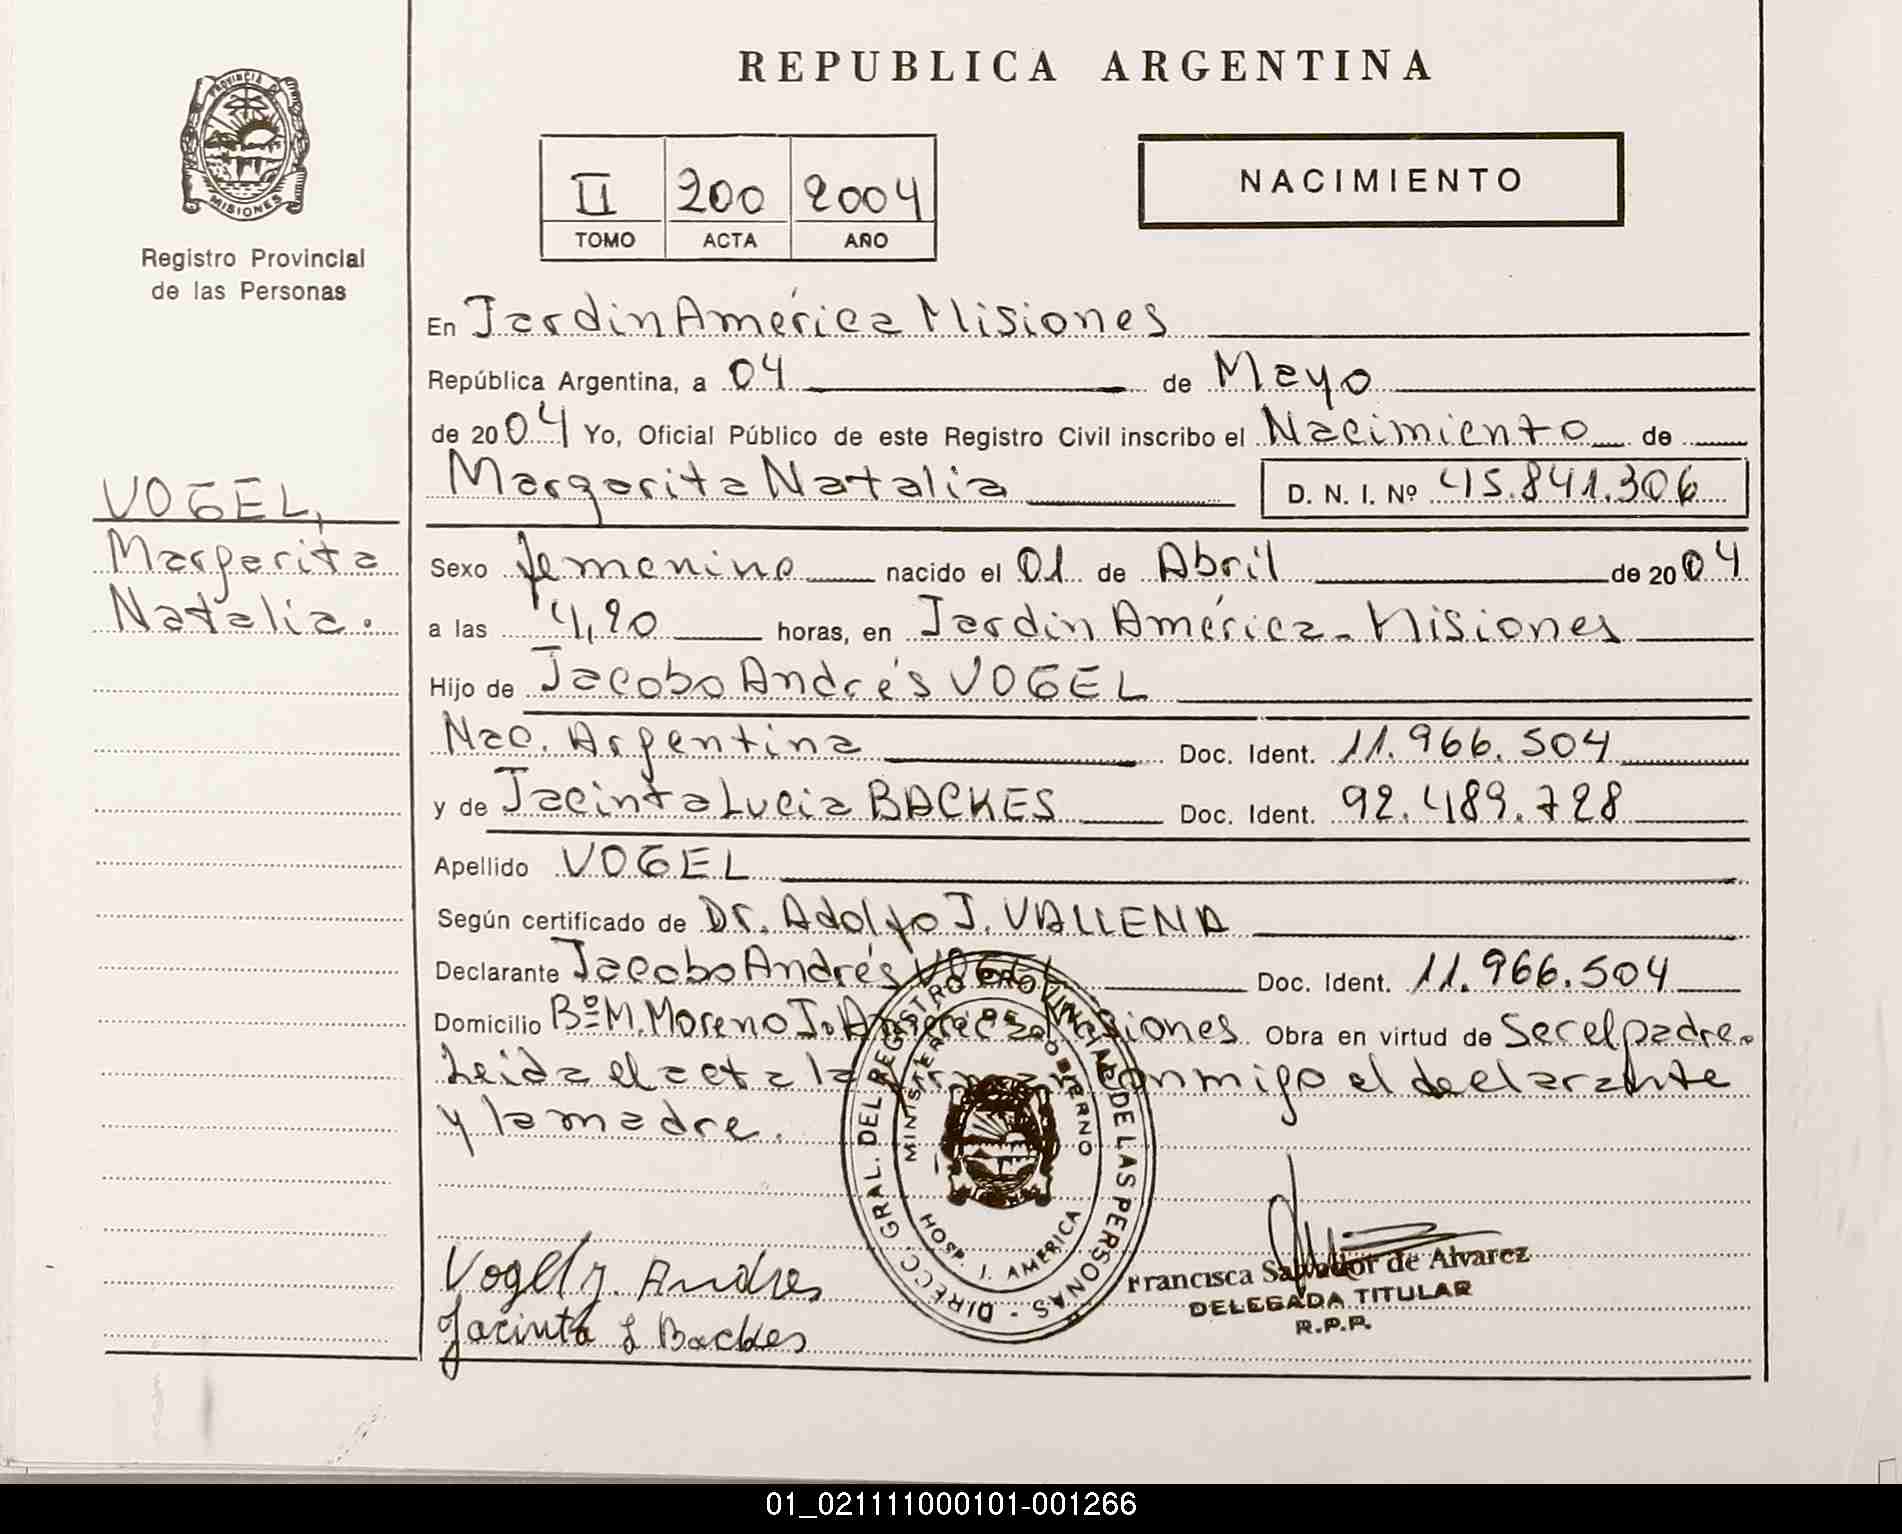 REPUBLICA ARGENTINA
PROVINCIA DE
MISIONES
Registro Provincial
de las Personas
II 200 2004
TOMO ACTA AÑO
NACIMIENTO
En Jardin América Misiones
República Argentina, a 04 de Mayo
de 2004 Yo, Oficial Público de este Registro Civil inscribo el Nacimiento de
Margarita Natalia D. N. I. Nº 45.841.306
VOGEL,
Margarita
Natalia.
Sexo femenino nacido el 01 de Abril de 2004
a las 4,20 horas, en Jardin América - Misiones
Hijo de Jacobo Andrés VOGEL
Nac. Argentina Doc. Ident. 11.966.504
y de Jacinta Lucia BACKES Doc. Ident. 92.489.728
Apellido VOGEL
Según certificado de Dr. Adolfo J. VALLENA
Declarante Jacobo Andrés VOGEL Doc. Ident. 11.966.504
Domicilio Bº M. Moreno J. América Misiones Obra en virtud de Ser el padre.
Leida el acta la firman conmigo el declarante
y la madre.
DIRECC. GRAL. DEL REGISTRO PROVINCIAL DE LAS PERSONAS -
MINISTERIO DE GOBIERNO
HOSP. J. AMERICA
Vogel J. Andres
Jacinta L Backes
Francisca Salvador de Alvarez
DELEGADA TITULAR
R.P.P.
01_021111000101-001266